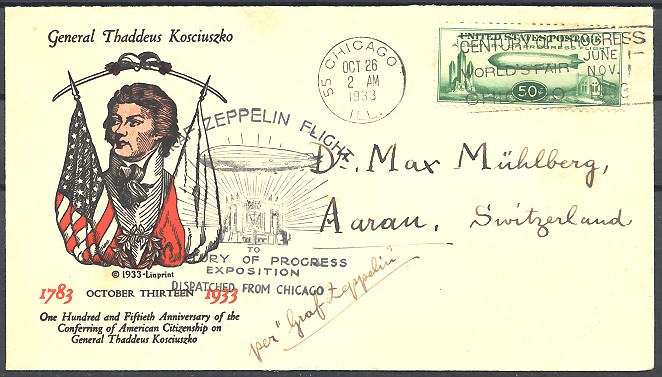 General Thaddeus Kosciuszko
© 1933-Linprint
1783 OCTOBER THIRTEEN 1933
One Hundred and Fiftieth Anniversary of the
Conferring of American Citizenship on
General Thaddeus Kosciuszko
ZEPPELIN FLIGHT
TO
URY OF PROGRESS
EXPOSITION
DISPATCHED FROM CHICAGO
55 CHICAGO
OCT 26
2 AM
1933
ILL.
UNITED STATES POSTAGE
A CENTURY OF PROGRESS FLIGHT
50c
CENTURY OF PROGRESS
WORLD'S FAIR
JUNE
NOV. 1
Dr. Max Mühlberg,
Aarau, Switzerland
per "Graf Zeppelin"